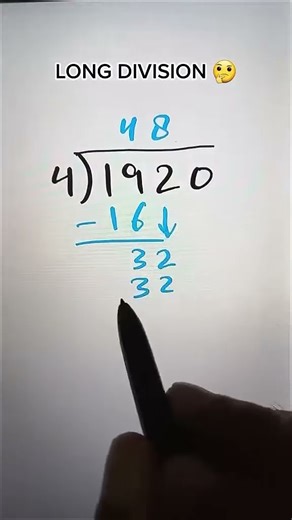 LONG DIVISION 🤔
48
4)1920
-16↓
32
32